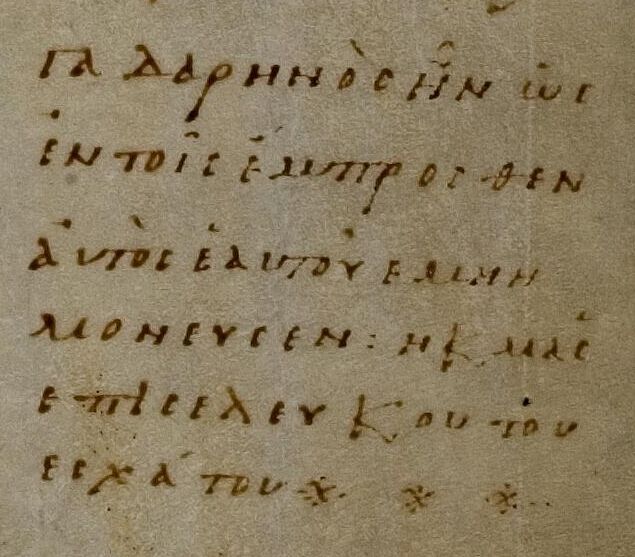 Γαδαρηνὸς ἦν ὡς
ἐν τοῖς ἔμπροσθεν
ἀυτὸς ἑαυτοῦ εμνη
μονευσεν: ηκμασ
επὶ σελευκου του
εσχάτου ※ ※ ※